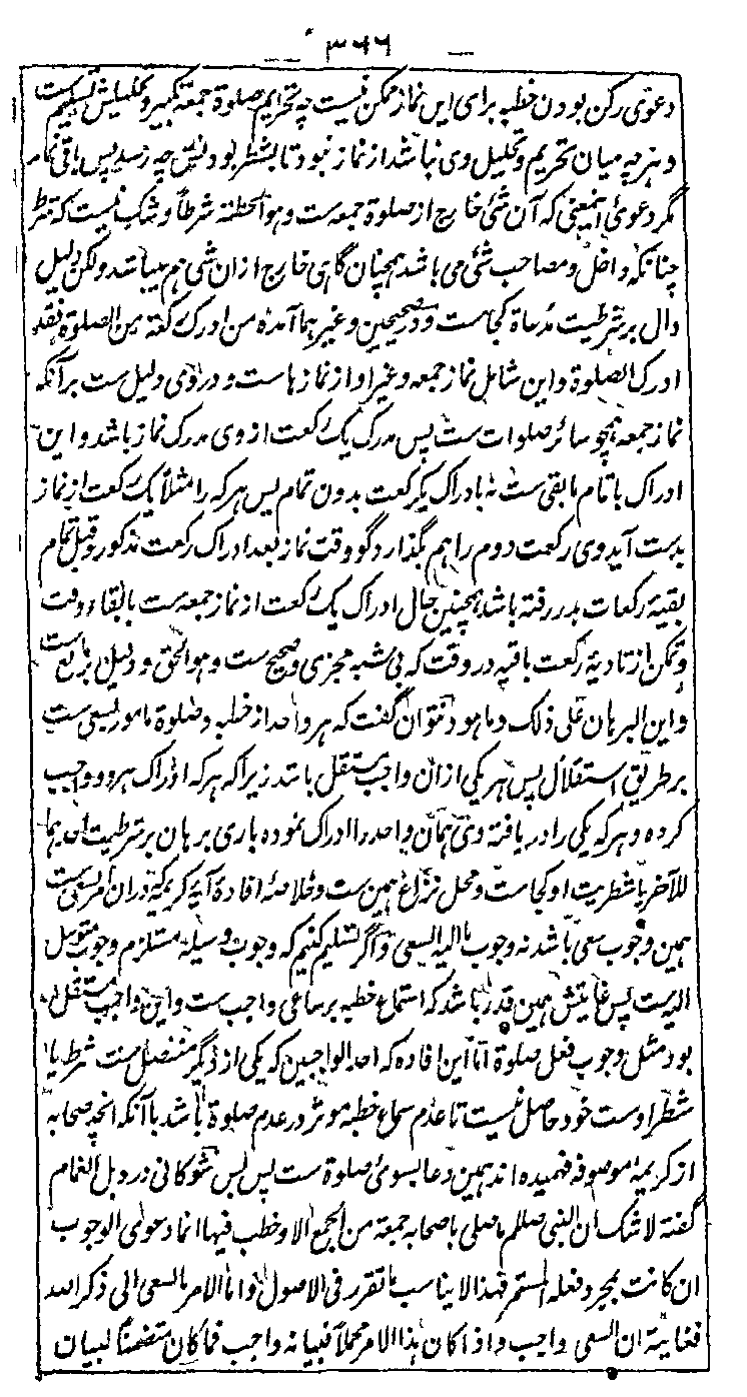 ۳۶۶
دعوی رکن بودن خطبه برای این نماز ممکن نیست چه تحریم صلوة جمعه تکبیر و تحلیلش تسلیم ست
و هر چه میان تحریم و تحلیل وی نباشد از نماز نبود تا بشطر بودنش چه رسد پس باقی نماند
مگر دعوی اینمعنی که آن شئ خارج از صلوة جمعه ست و هو الخطبة شرطاً و شک نیست که شرط
چنانکه داخل و مصاحب شئ می باشد همچنان گاهی خارج ازان شئ هم میباشد ولکن دلیل
دال بر شرطیت مدعاة کجاست و در صحیحین و غیرهما آمده من ادرک رکعة من الصلوة فقد
ادرک الصلوة و این شامل نماز جمعه و غیر او از نمازها ست و در وی دلیل ست برآنکه
نماز جمعه همچو سائر صلوات ست پس مدرک یک رکعت از وی مدرک نماز باشد و این
ادراک باتمام مابقی ست نه بادراک یکرکعت بدون تمام پس هر که را مثلاً یک رکعت از نماز
بدست آید وی رکعت دوم را هم بگذارد گو وقت نماز بعد ادراک رکعت مذکور و قبل تمام
بقیهٔ رکعات بدر رفته باشد همچنین حال ادراک یک رکعت از نماز جمعه ست با بقاء وقت
و تمکن از تادیهٔ رکعت باقیه در وقت که بی شبه مجزی و صحیح ست و هو الحق و دلیل بر مانع ست
و این البرهان علی ذلک و ما هو و نتوان گفت که هر واحد از خطبه و صلوة مامور بسعی ست
بر طریق استقلال پس هر یکی ازان واجب مستقل باشد زیراکه هر که ادراک هر دو واجب
کرده و هر که یکی را دریافته وی همان واحد را ادراک نموده باری برهان بر شرطیت احدهما
للآخر یا شطریت او کجاست و محل نزاع همین ست و خلاصهٔ افادهٔ آیه کریمه که دران امر بسعی ست
همین وجوب سعی باشد نه وجوب ما الیه السعی و اگر تسلیم کنیم که وجوب وسیله مستلزم وجوب متوسل
الیه ست پس غایتش همین قدر باشد که استماع خطبه بر ساعی واجب ست و این واجب مستقل
بود مثل وجوب فعل صلوة اما این افاده که احد الواجبین که یکی از دیگر منفصل ست شرط یا
شطر اوست خود حاصل نیست تا عدم سماع خطبه موثر در عدم صلوة باشد با آنکه انچه صحابه
از کریمهٔ موصوفه فهمیده اند همین دعا بسوی صلوة ست پس بس شوکانی در وبل الغمام
گفته لا شک ان النبی صللم ما صلی باصحابه جمعة من الجمع الا و خطب فیها انما دعوی الوجوب
ان کانت بمجرد فعله المستمر فهذا لا یناسب ما تقرر فی الاصول و اما الامر بالسعی الی ذکر الله
فغایته ان السعی واجب و اذا کان هذا الامر مجملاً فبیانه واجب فما کان متضمناً لبیان